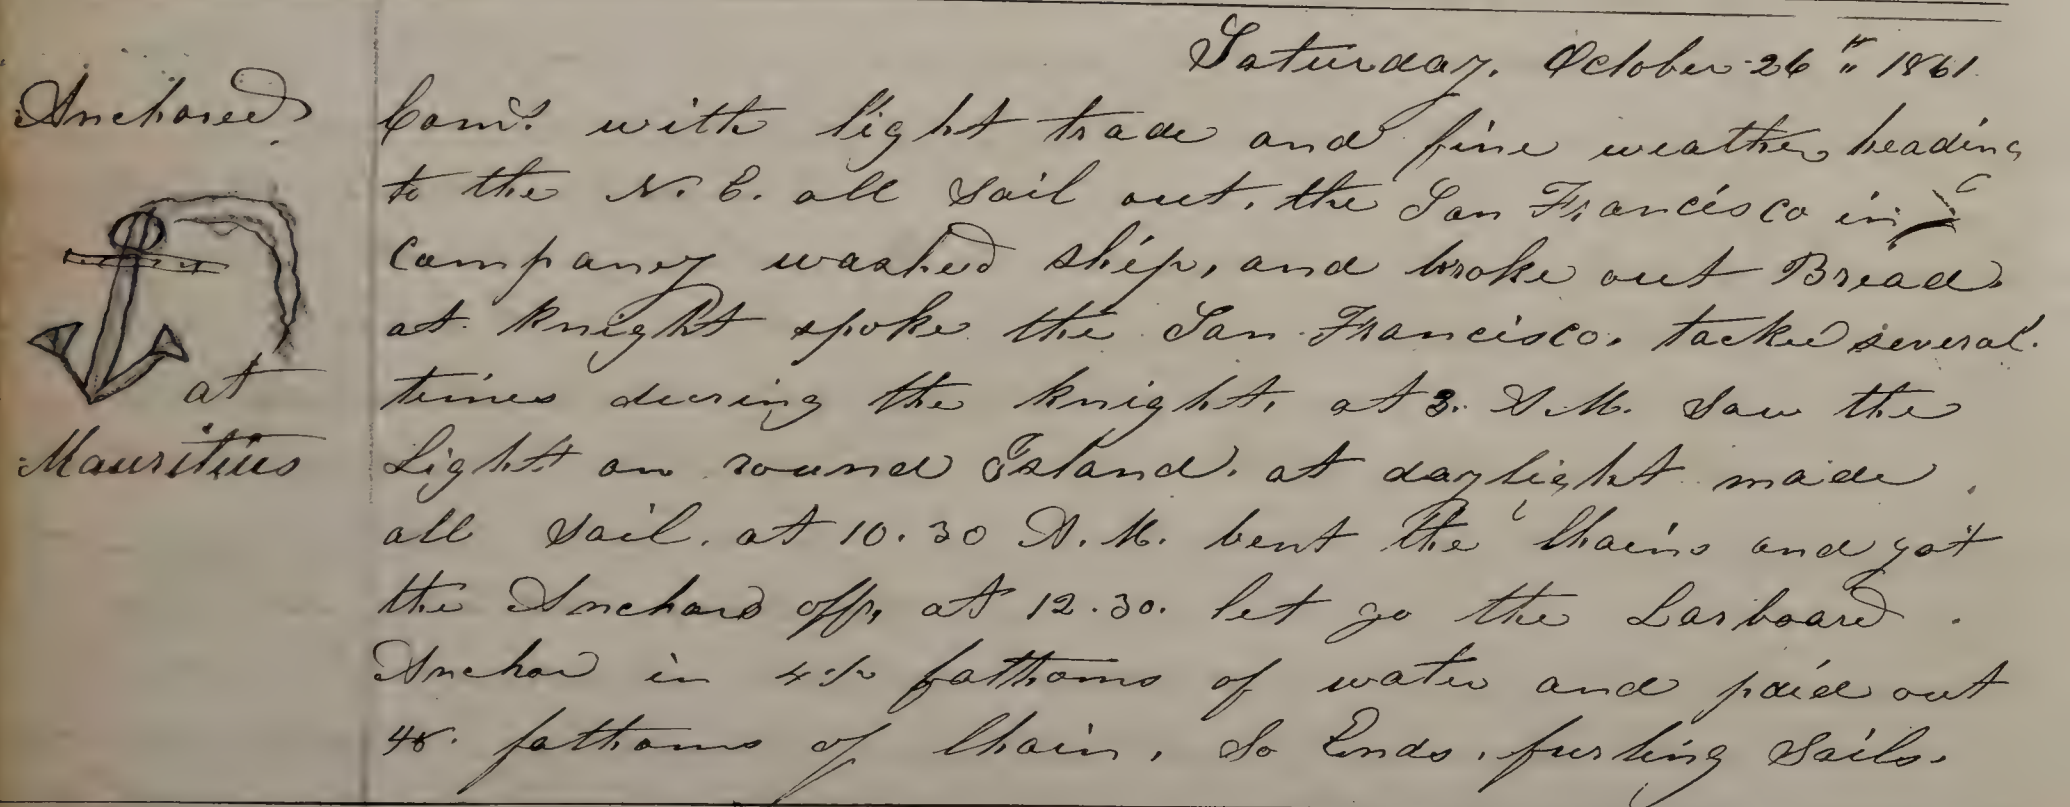 Saturday, October 26" 1861
Anchored
at
Mauritius
Comd. with light trade and fine weather, heading
to the N. E. all sail out, the San Francisco in
Company washed ship, and broke out Bread.
at knight spoke the San Francisco. tacked several
times during the knight, at 3. A.M. saw the
Light on round Island. at daylight made
all sail. at 10.30 A.M. bent the Chains and got
the Anchors off, at 12.30. let go the Larboard
Anchor in 4½ fathoms of water and paid out
fathoms of Chain, So Ends, furling Sails.